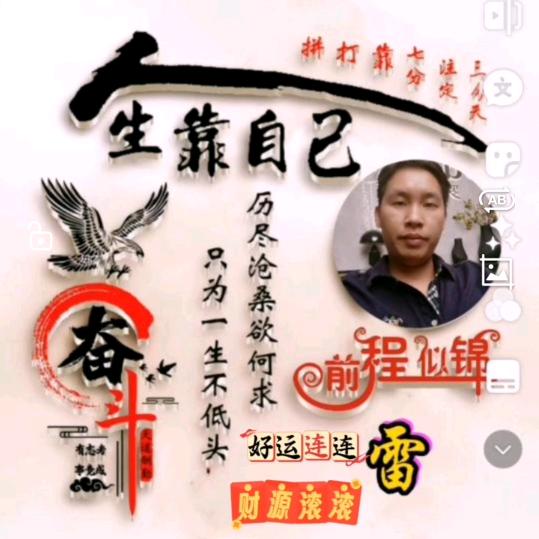 三分天
注定
七分
靠
打
拼
人生靠自己
历尽沧桑欲何求
只为一生不低头
奋斗
有志者
事竟成
天道酬勤
前程似锦
好运连连
雷
财源滚滚
文
AB